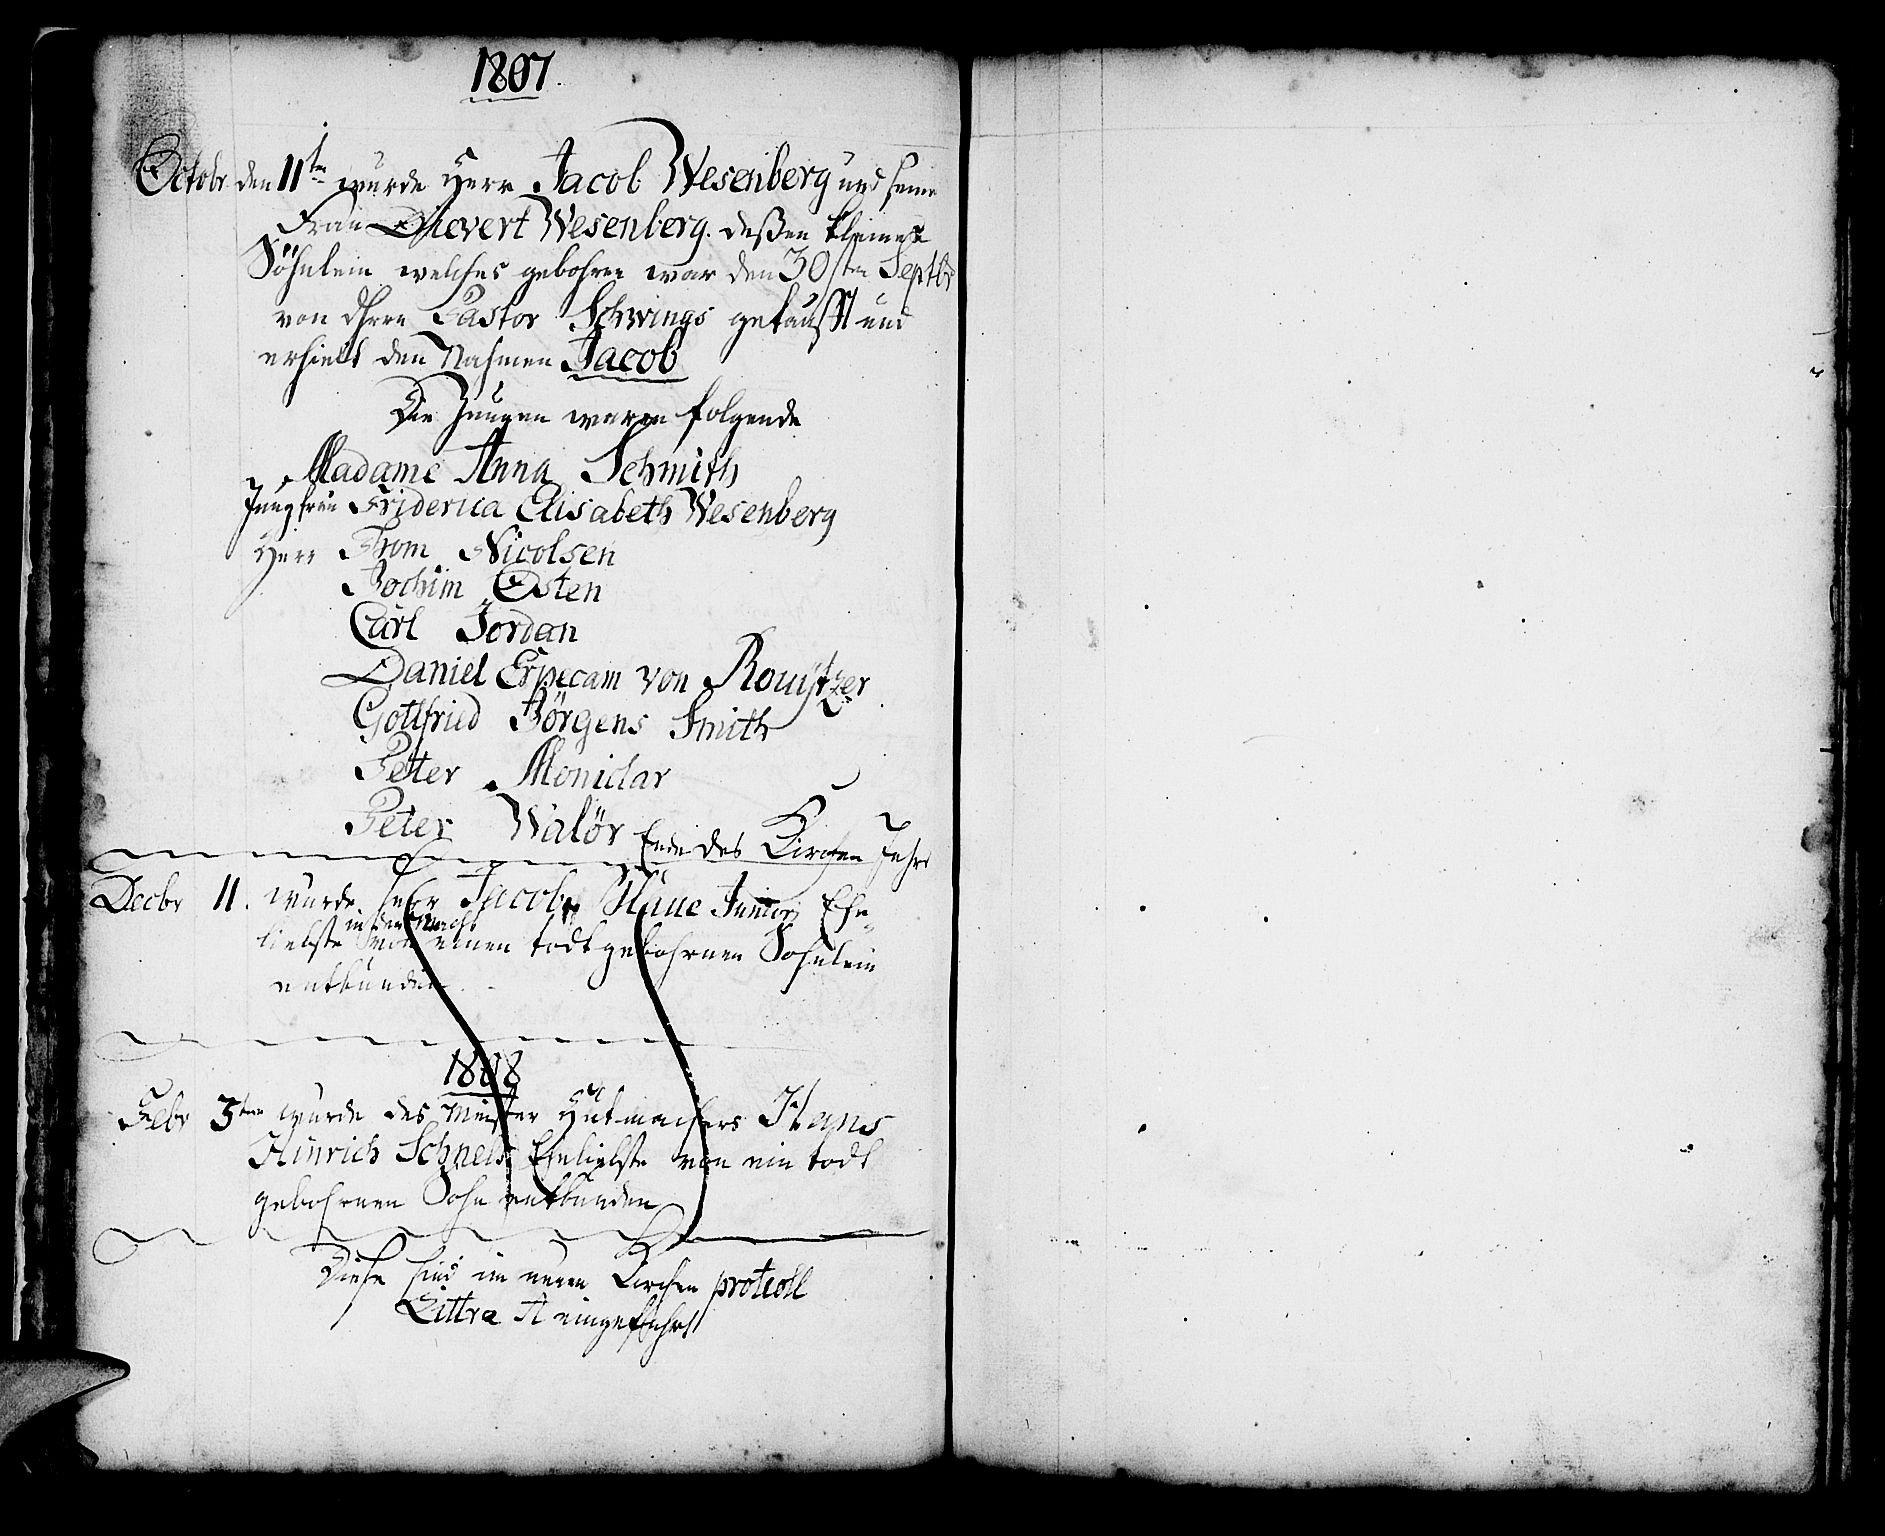 1807.
Octobr den 11ten wurde Herr Jacob Wesenberg und seine
Frau Sievert Wesenberg. deßen kleines
Söhnlein welches gebohren war den 30sten Septbr
von Pastor Schwings getaufft und
erhielt den Nahmen Jacob
Die Zeugen waren folgende
Madame Anna Schmith
Jungfrau Friderica Elisabeth Wesenberg
Herr From Nicolsen
Jochim Osten
Carl Jordan
Daniel Erpecam von
Gottfried Jörgens Smith
Peter Moniclar
Peter Walör Ende des Kirchen Jahrs
Decbr 11. wurde Herr Jacob Junior Ehe-
in der Nacht
liebste von einen todtgebohrnen Sohnlein
entbunden
1808
Febr 3ten wurde des Meister Hutmachers Hans
Hinrich Eheliebste von ein todt
gebohrnen Sohn entbunden
Diese sind im neuen Kirchen protocoll
Littra A eingeführt